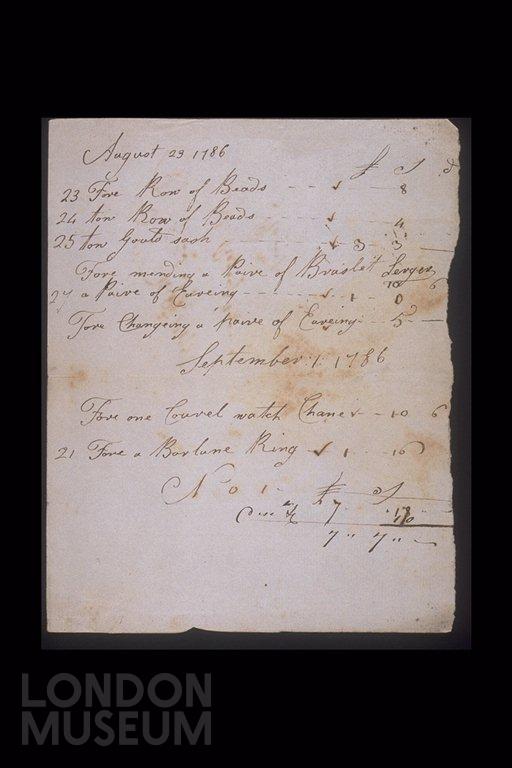 August 23 1786
£ S d
23 Fore Row of Beads 8
24 ton Row of Beads 4
25 ton Gould sash 3 3
Fore mending a Paire of Braslet Lerger
10 6
27 a Paire of Eareing 1 0
Fore Changeing a paire of Eareing 5
September 1 1786
Fore one Courel watch Chane 10 6
21 Fore a Barlune Ring 1 16
No 1 £ S
7
7 " 7 "
LONDON
MUSEUM